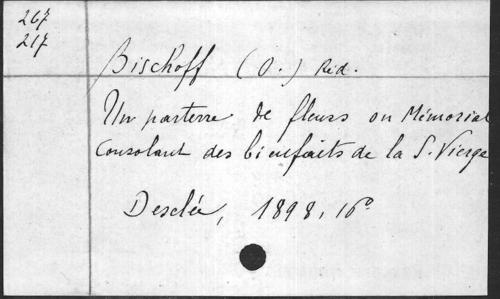 267
217
Bischoff (O.) Réd.
Un parterre de fleurs ou Mémorial
Consolant des bienfaits de la S. Vierge
Desclée, 1898, 16°